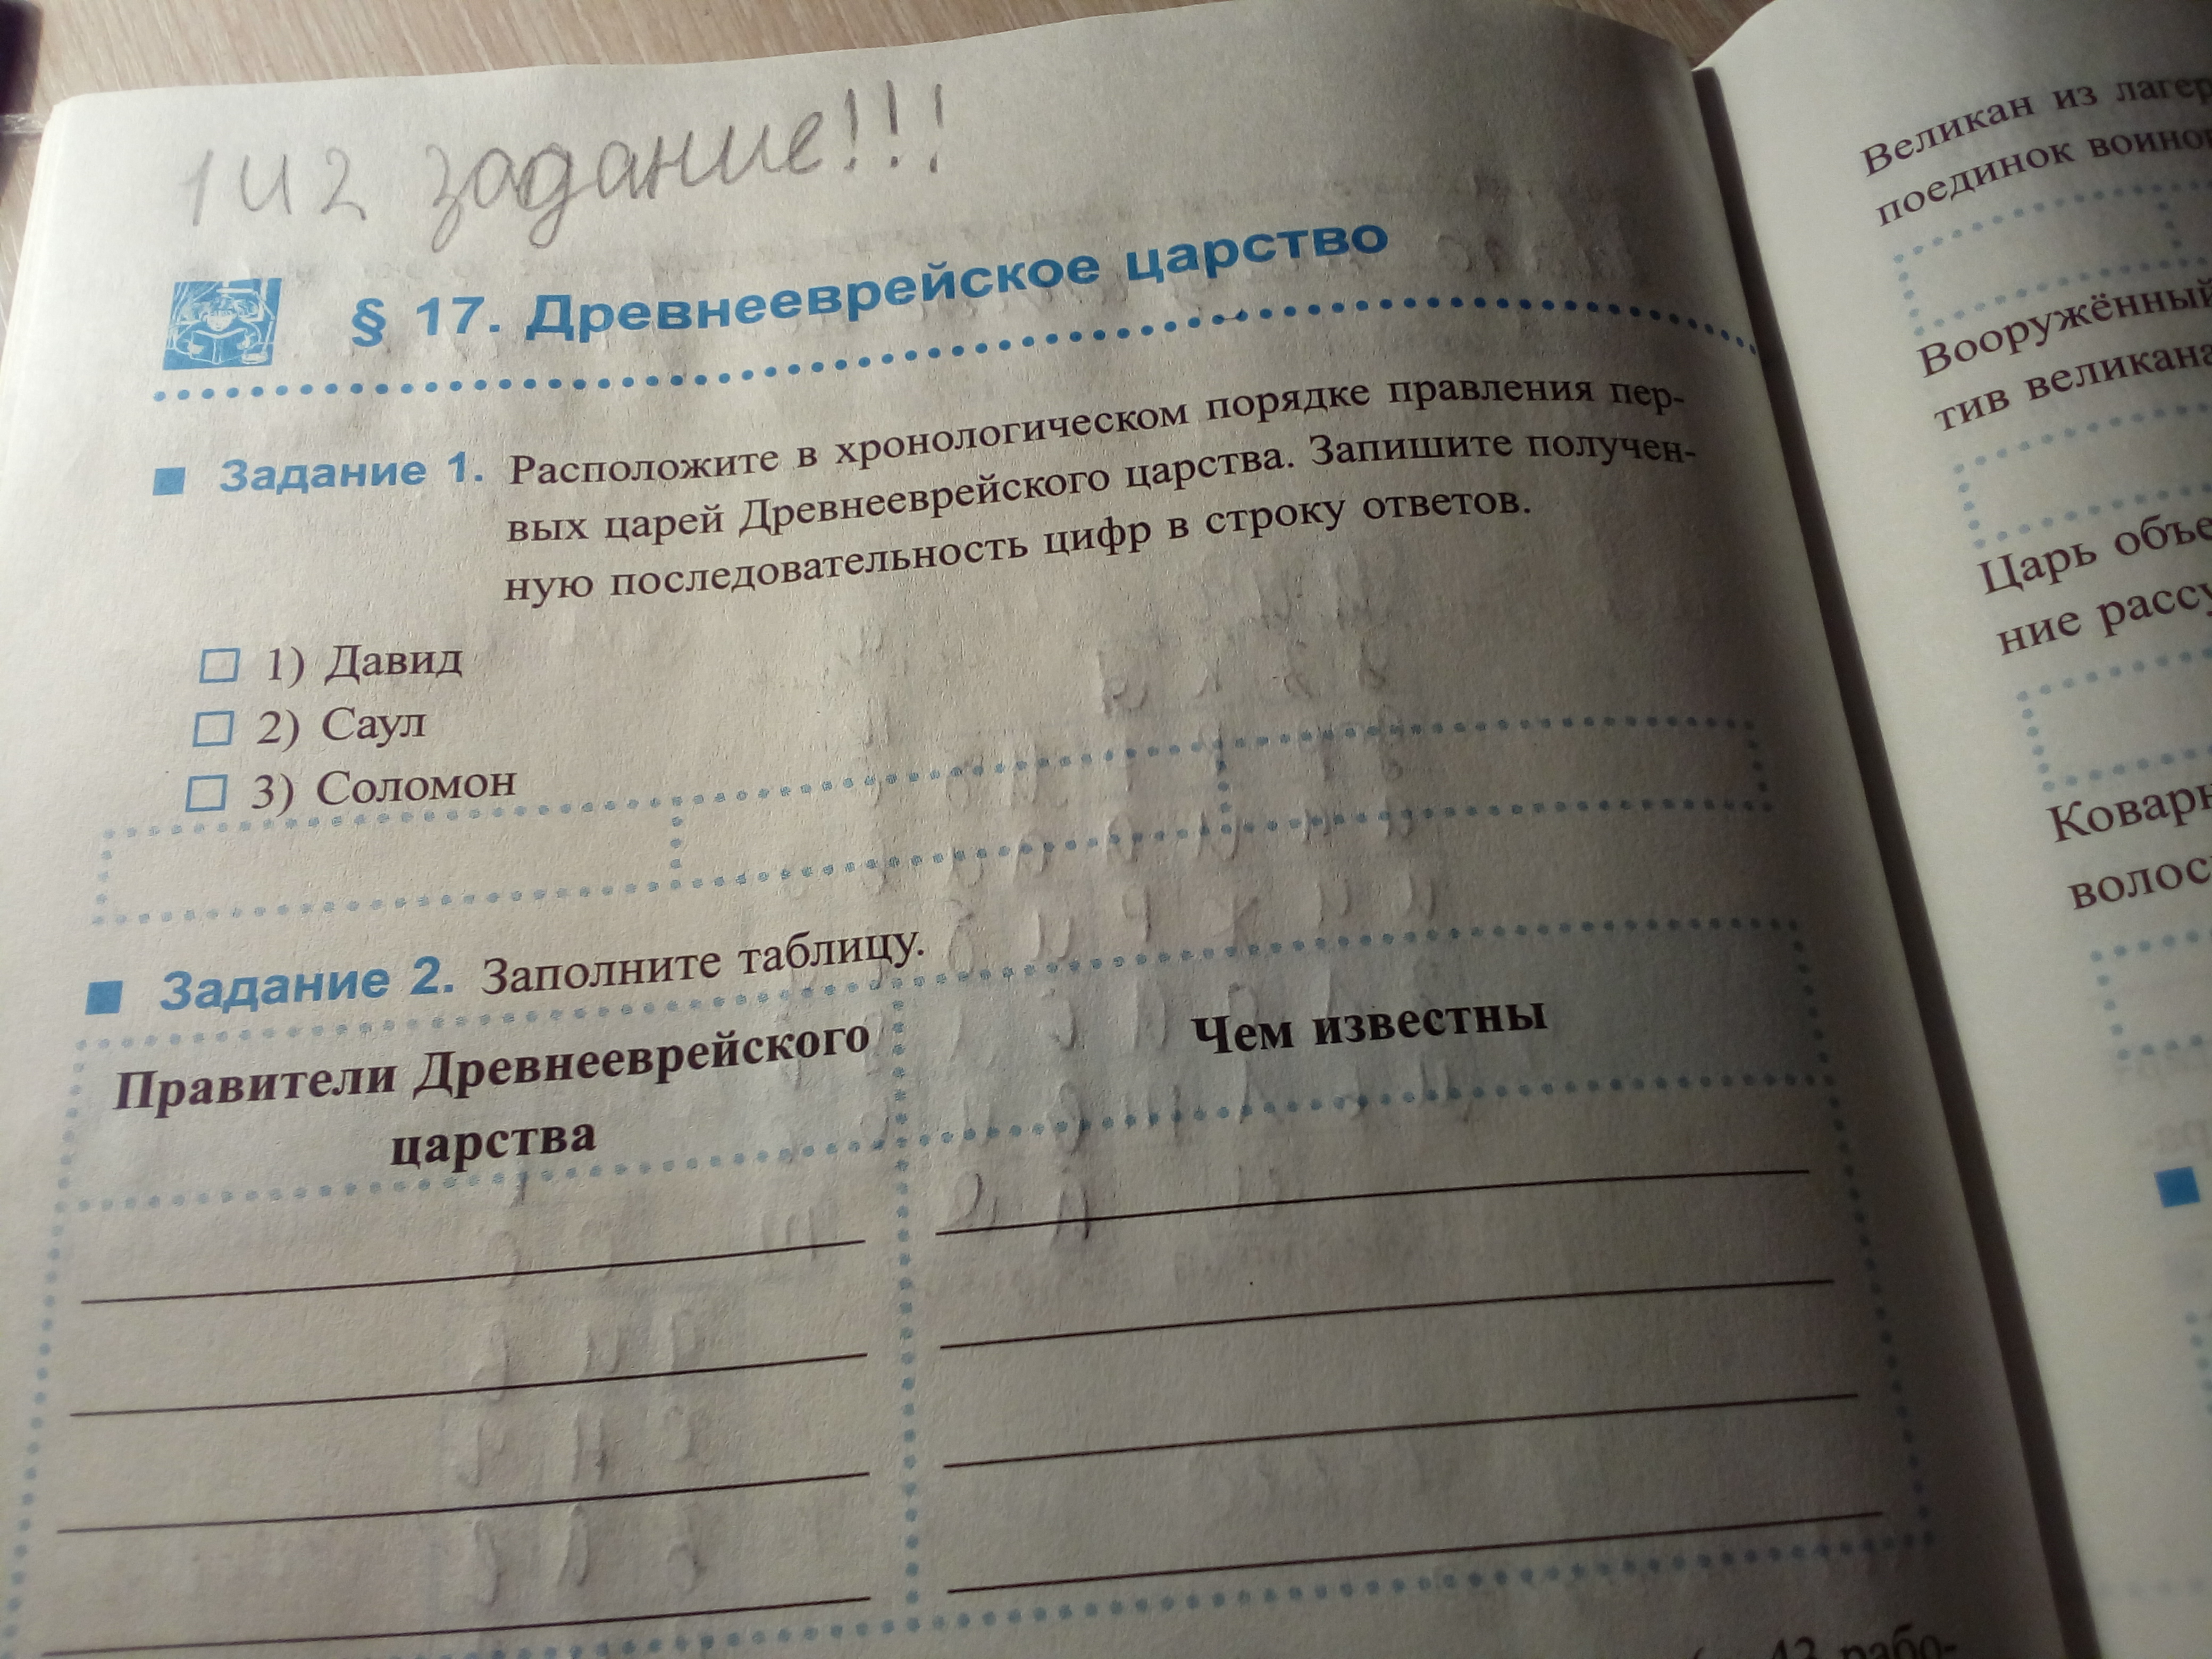 1 и 2 задание!!!
§ 17. Древнееврейское царство
Задание 1. Расположите в хронологическом порядке правления пер-
вых царей Древнееврейского царства. Запишите получен-
ную последовательность цифр в строку ответов.
1) Давид
2) Саул
3) Соломон
Задание 2. Заполните таблицу.
Правители Древнееврейского
царства
Чем известны
Великан из
поединок
Вооружённый
тив великана
Царь
ние